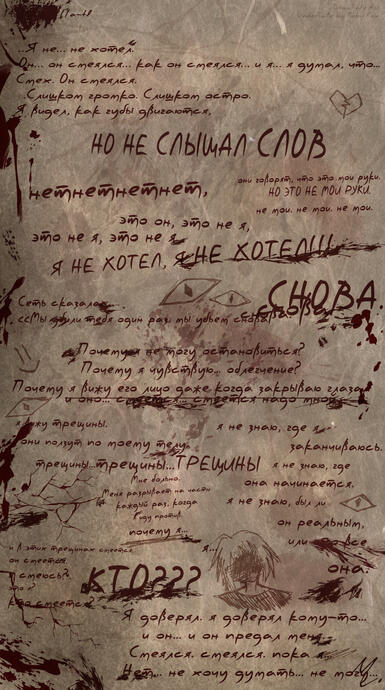 ...Я не... не хотел...
Он... он смеялся... как он смеялся... и я... я думал, что...
Смех. Он смеялся.
Слишком громко. Слишком остро.
Я видел, как губы двигаются,
НО НЕ СЛЫШАЛ СЛОВ
они говорят, что это мои руки.
НО ЭТО НЕ МОИ РУКИ.
не мои. не мои. не мои.
нетнетнетнетнет,
это он, это не я,
это не я, это не я
Я НЕ ХОТЕЛ, Я НЕ ХОТЕЛ!!!
Сеть сказала:
СНОВА.
один раз, мы убьем
Почему я не могу остановиться?
Почему я чувствую... облегчение?
Почему я вижу его лицо даже когда закрываю глаза
и оно... смеется... смеется надо мной
я вижу трещины.
они ползут по моему телу.
трещины...трещины...ТРЕЩИНЫ
я не знаю, где я
заканчиваюсь.
я не знаю, где
она начинается.
я не знаю, был ли
он реальным,
или все
она.
Мне больно.
Меня разрывает на части
каждый раз, когда
иду против.
почему я...
я...
и в этих трещинах смеется
он смеется
я смеюсь?
это я?
кто смеется
КТО???
Я доверял. я доверял кому-то...
и он... и он предал меня
Смеялся. смеялся. пока я
Нет... не хочу думать... не могу...